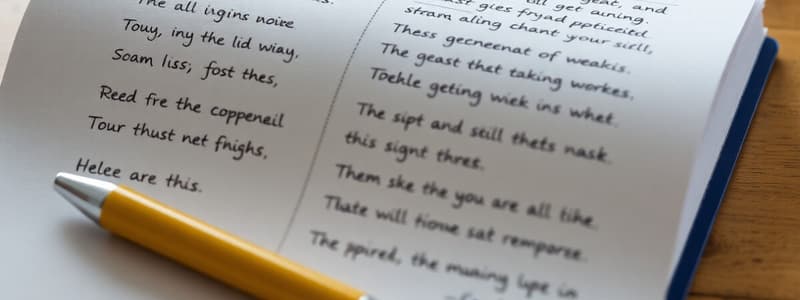 The all ingins noire
Touy, iny the lid wiay,
Soam liss; fost thes,
Reed fre the coppeneil
Tour thust net fnighs,
Helee are this.
till get auning.
gies fryad ppiticeitd
stram aling chant your siell,
Thess gecneenat of weakis.
The geast thet taking workes.
Toehle geting wiek ins whet.
The sipt and still thets nask.
this signt thres.
Them ske the you are all tihe.
Thate will tione sat remporse.
The ppired, the muaing lype in